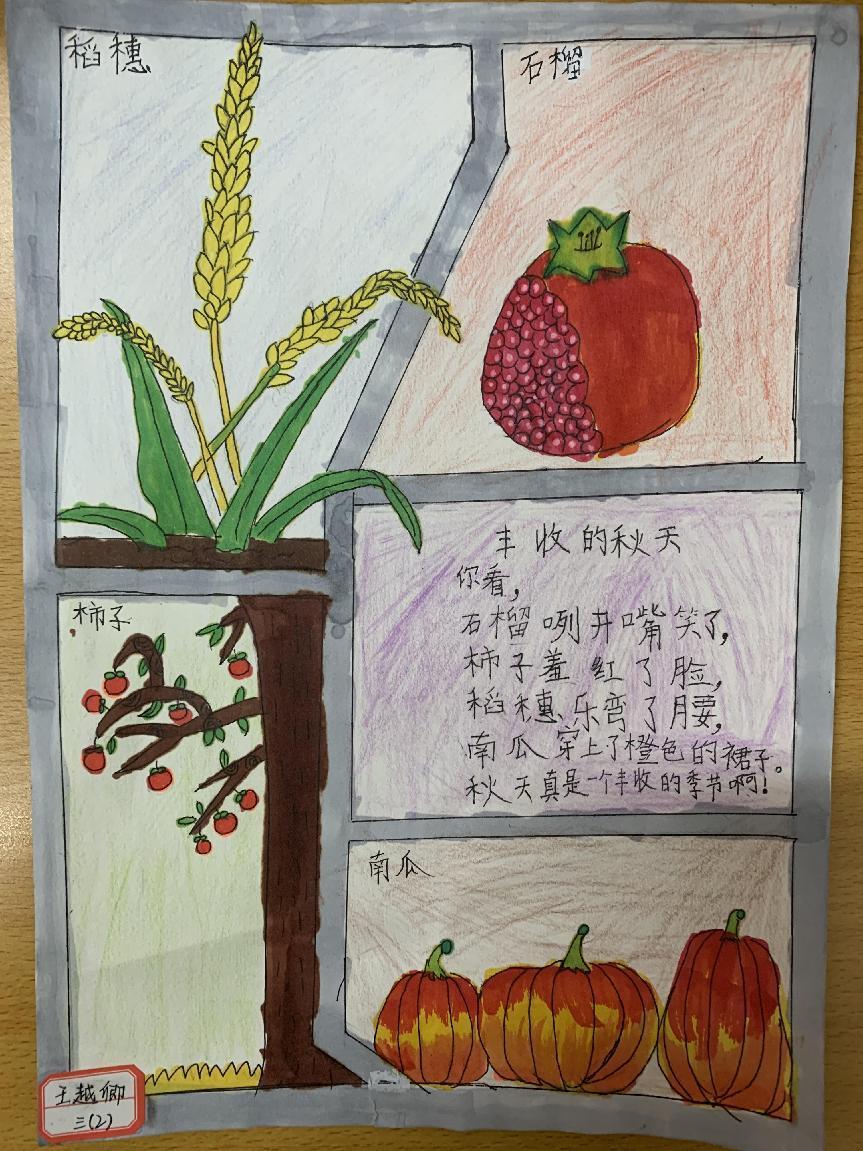 稻穗
石榴
丰收的秋天
你看,
石榴咧开嘴笑了,
柿子羞红了脸,
稻穗乐弯了腰,
南瓜穿上了橙色的裙子。
秋天真是一个丰收的季节啊!
柿子
南瓜
王越卿
三(2)